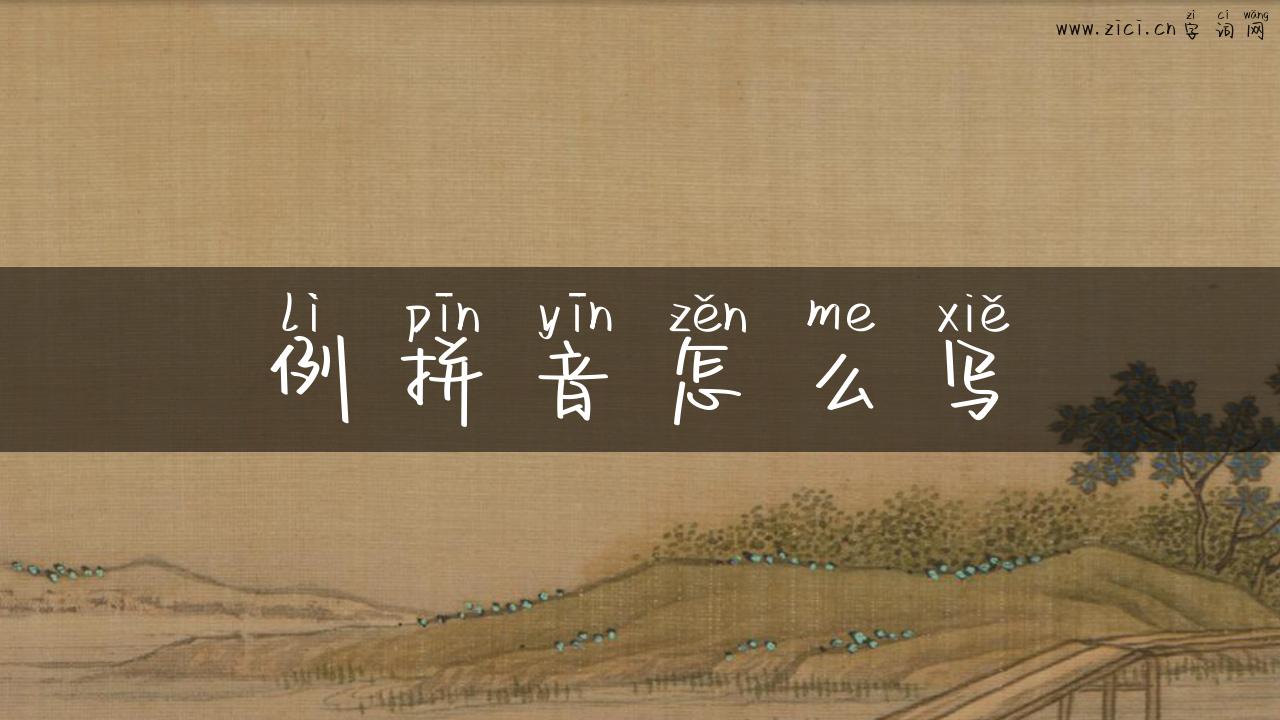 zì cí wǎng
www.zici.cn 字 词 网
lì pīn yīn zěn me xiě
例 拼 音 怎 么 写